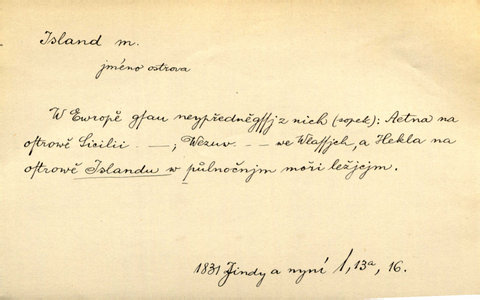 Island m.
jméno ostrova
W Ewropě gsau neypředněgssj z nich (sopek): Aetna na
ostrowě Sicilii – –; Wezuw – – we Wlassjch, a Hekla na
ostrowě Islandu w půlnočnjm moři ležjcjm.
1831 Jindy a nyní 1, 13a, 16.